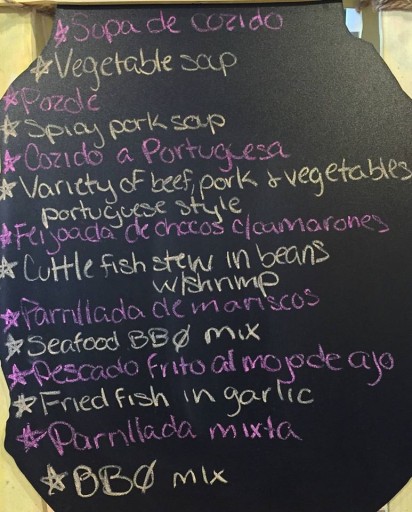 ☆Sopa de cozido
☆Vegetable soup
☆Pozole
☆Spicy pork soup
☆Cozido a Portuguesa
☆Variety of beef, pork & vegetables
portuguese style
☆Feijoada de chocos c/camarones
☆Cuttle fish stew in beans
w/shrimp
☆Parrillada de mariscos
☆Seafood BBQ mix
☆Pescado frito al mojo de ajo
☆Fried fish in garlic
☆Parrillada mixta
☆BBQ mix